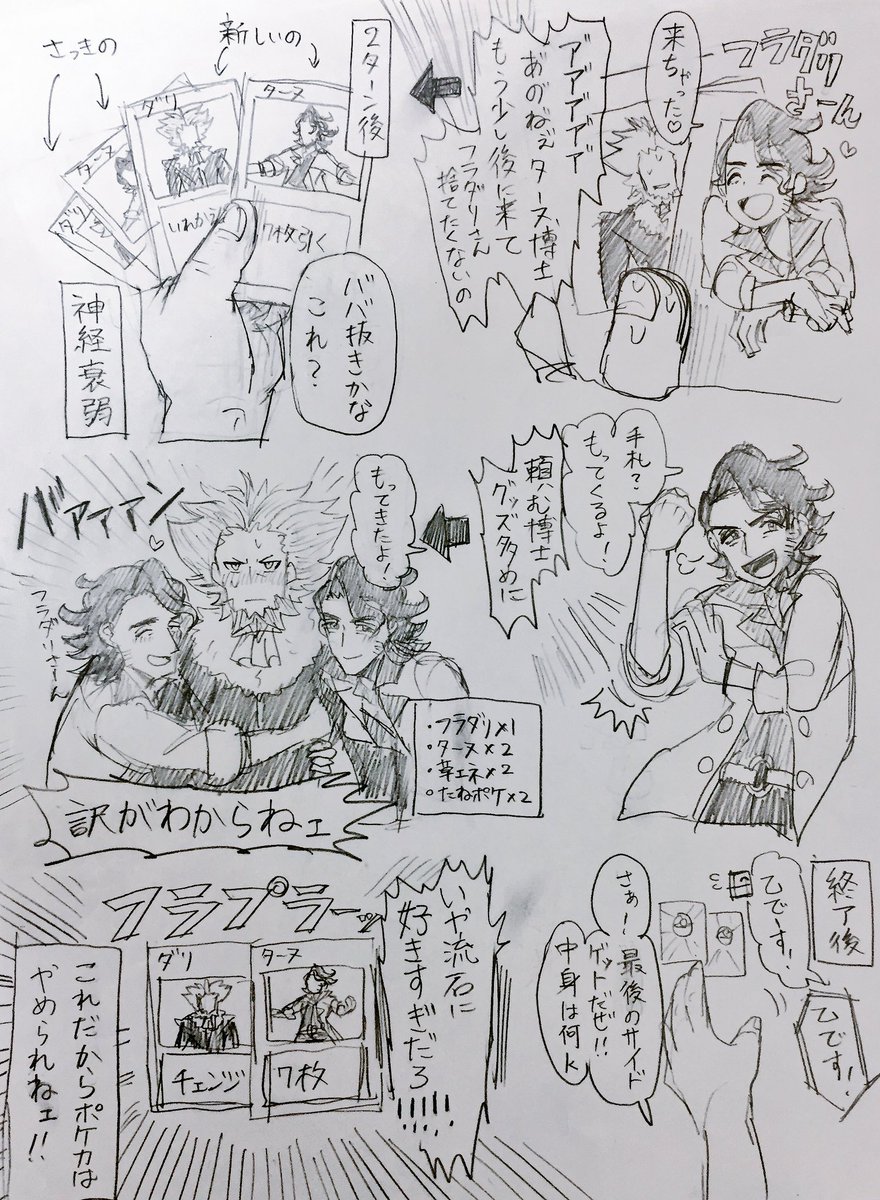 フラダリ
さーん
来ちゃった♡
アアアアア
あのねぇターヌ博士
もう少し後に来て
フラダリさん
捨てたくないの
2ターン後
新しいの
さっきの
ターヌ
ダリ
ターヌ
ダリ
7枚引く
ババ抜きかな
これ?
神経衰弱
手札?
もってくるよ!
頼む博士
グッズ多めに
もってきたよ!
バァァァン
フラダリさーん
・フラダリ×1
・ターヌ×2
・草エネ×2
・たねポケ×2
訳がわからねェ
終了後
乙でーす!
乙です!
さぁ!最後のサイド
ゲットだぜ!!
中身は何k
いや流石に
好きすぎだろ
!!!!!
フラプラーッ
ターヌ
7枚
ダリ
チェンジ
これだからポケカは
やめられねェ!!